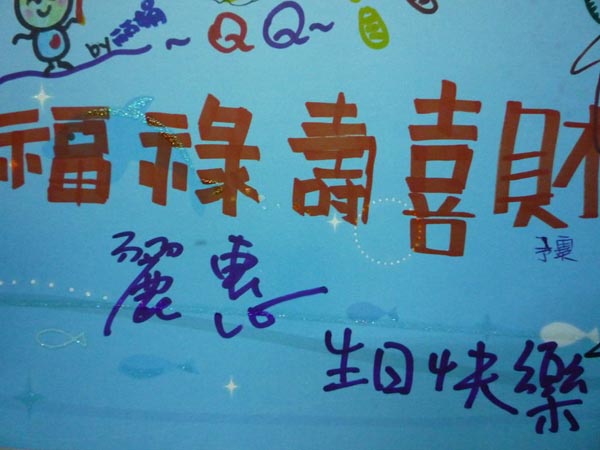 by
~QQ~
福祿壽喜財
麗惠
生日快樂